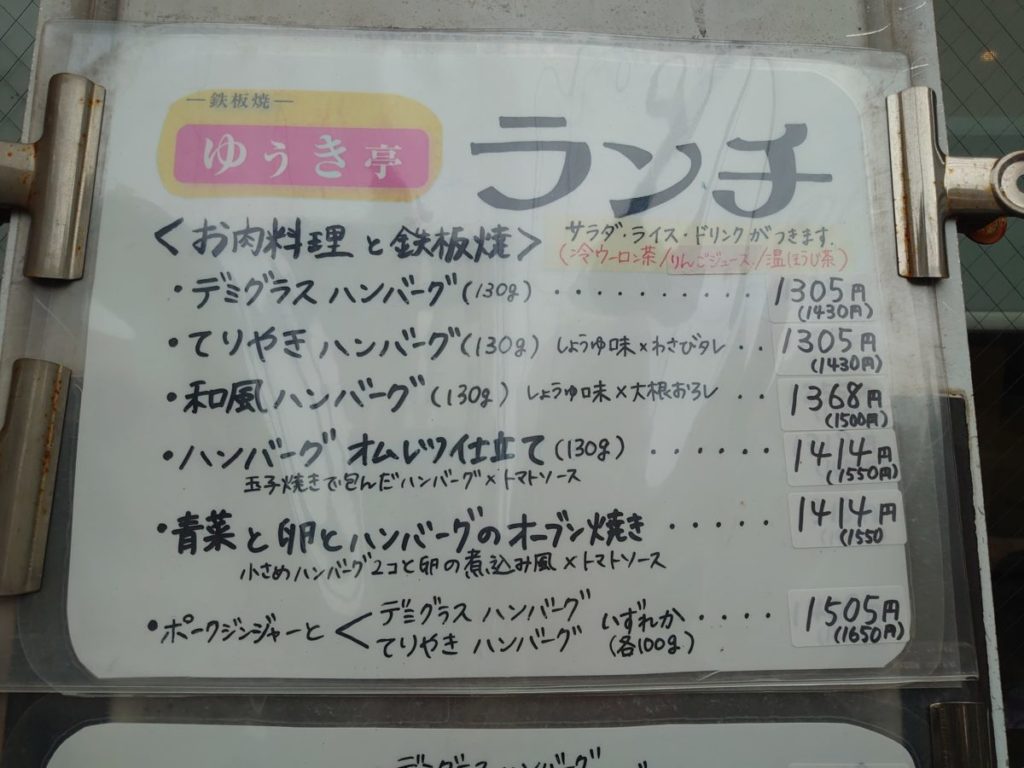 ―鉄板焼―
ゆうき亭
ランチ
<お肉料理と鉄板焼>
サラダ・ライス・ドリンクがつきます.
(冷ウーロン茶/りんごジュース/温ほうじ茶)
・デミグラスハンバーグ(130g)・・・・・・・・・・1305円
(1430円)
・てりやきハンバーグ(130g) しょうゆ味×わさびタレ・・1305円
(1430円)
・和風ハンバーグ(130g) しょうゆ味×大根おろし・・1368円
(1500円)
・ハンバーグオムレツ仕立て(130g)・・・・・・1414円
(1550円)
玉子焼きで包んだハンバーグ×トマトソース
・青菜と卵とハンバーグのオーブン焼き・・・・・1414円
(1550
小さめハンバーグ2コと卵の煮込み風×トマトソース
・ポークジンジャーと<デミグラスハンバーグ
てりやきハンバーグ
いずれか・・・・1505円
(各100g)
(1650円)
デミグラスハンバーグ